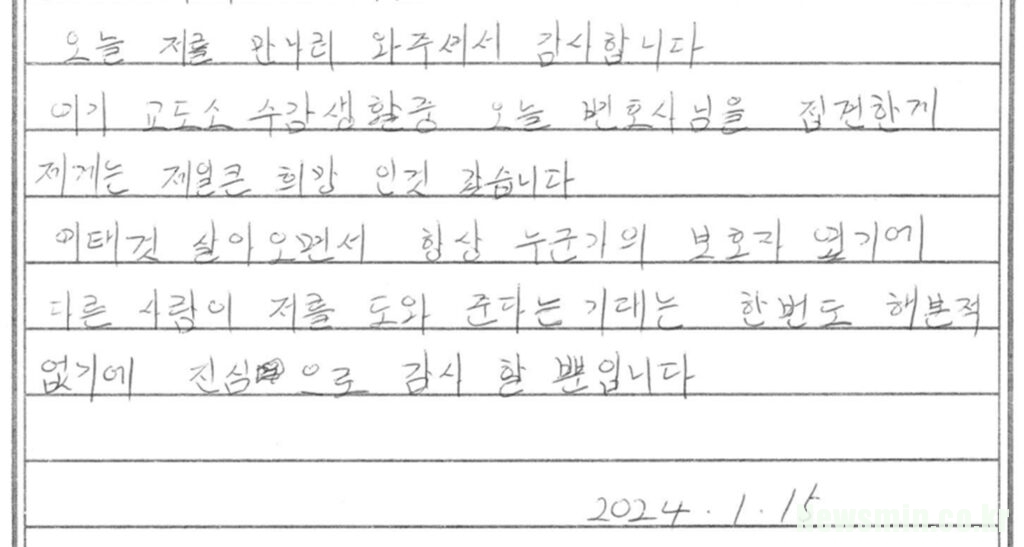 오늘 저를 만나러 와주셔서 감사합니다
여기 교도소 수감생활중 오늘 변호사님을 접견한게
제게는 제일큰 희망 인것 같습니다
여태것 살아오면서 항상 누군가의 보호자 였기에
다른 사람이 저를 도와 준다는 기대는 한번도 해본적
없기에 진심 으로 감사 할 뿐입니다
2024. 1. 15
newsmin.co.kr